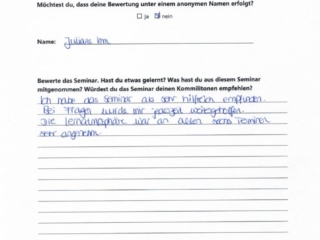 Möchtest du, dass deine Bewertung unter einem anonymen Namen erfolgt?
ja nein
Name:
Bewerte das Seminar. Hast du etwas gelernt? Was hast du aus diesem Seminar
mitgenommen? Würdest du das Seminar deinen Kommilitonen empfehlen?
Ich habe das Seminar als sehr hilfreich empfunden.
Bei Fragen wurde mir jederzeit weitergeholfen.
Die Lernatmosphäre war an allen sechs Terminen
sehr angenehm.